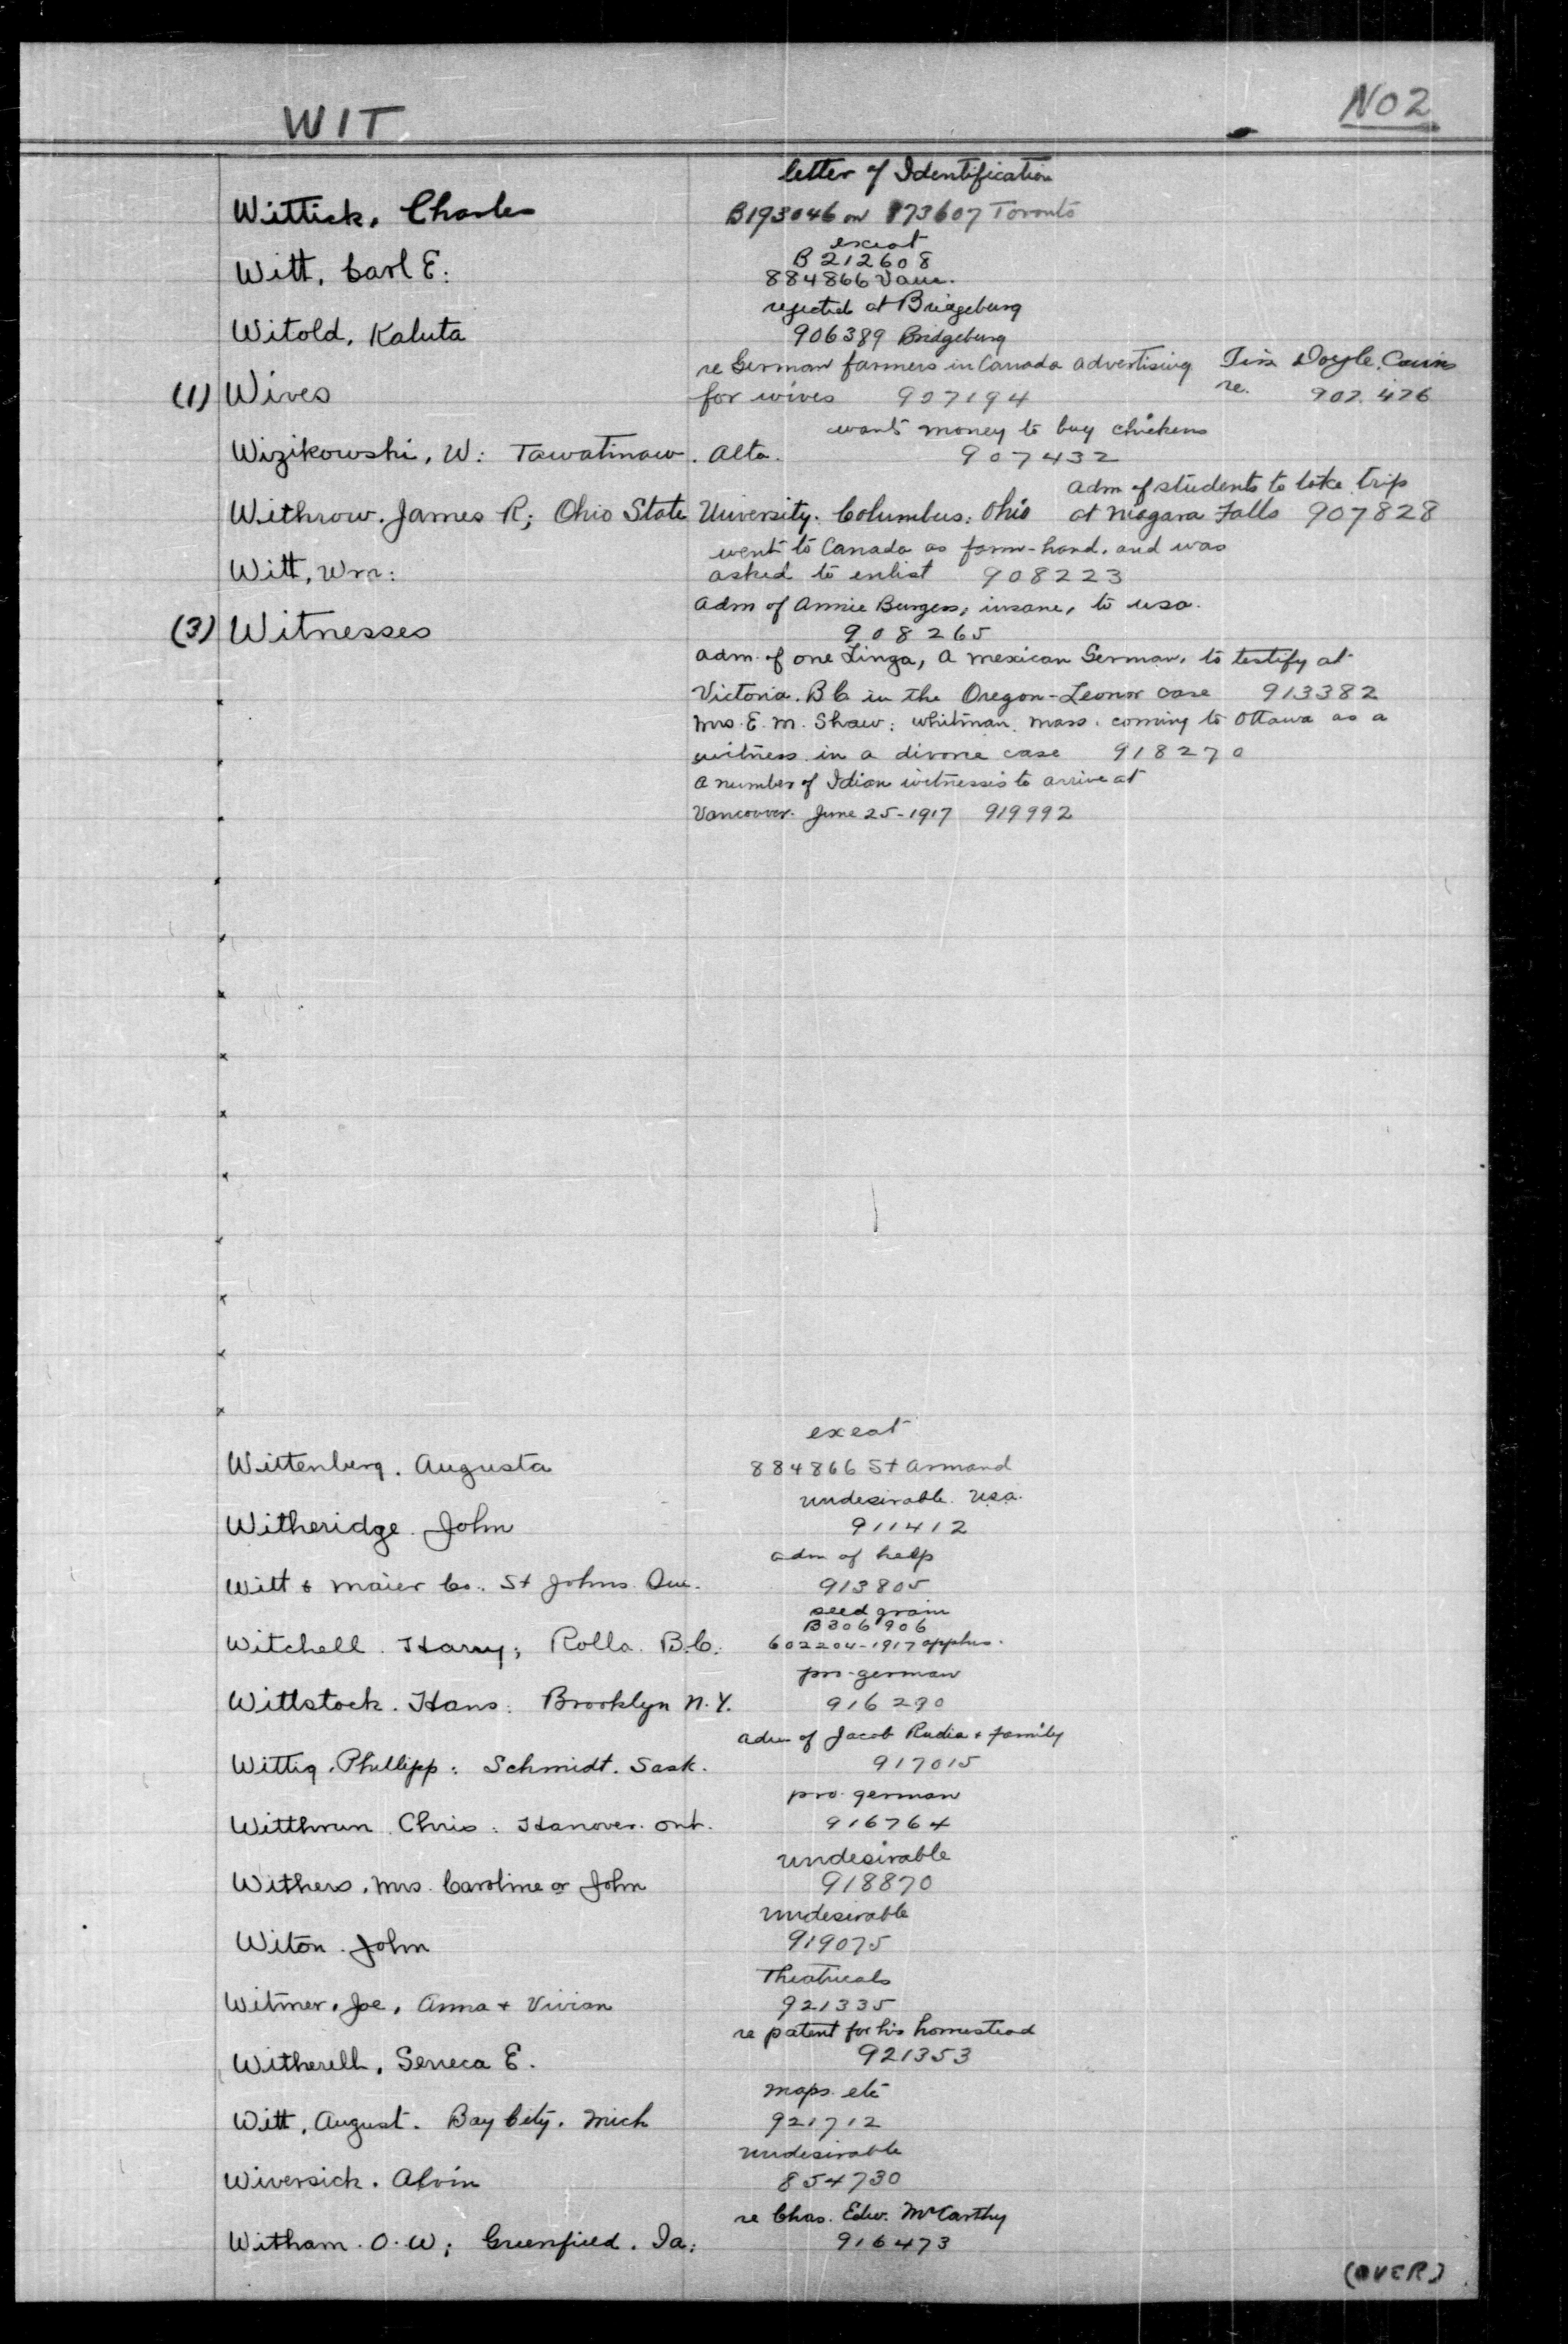 WIT
NO 2
letter of Identification
Wittick, Charles B193046 on 173607 Toronto
exeat
B 212608
Witt, Carl E: 884866 Vanc.
rejected at Bridgeburg
Witold, Kaluta 906389 Bridgeburg
re German farmers in Canada advertising Doyle,
(1) Wives for wives 907194 re. 902.426
wants money to buy chickens
Wizikowski, W: Tawatinaw. Alta. 907432
adm of students to take trip
Withrow. James R; Ohio State University. Columbus: Ohio at Niagara Falls 907828
went to Canada as farm-hand, and was
Witt, Wm: asked to enlist 908223
adm of Annie Burgess, insane, to usa.
(3) Witnesses 908265
adm. of one Linga, a mexican German, to testify at
Victoria. BC in the Oregon-Leonor case 913382
Mrs. E. M. Shaw: Whitman, Mass. coming to Ottawa as a
witness in a divorce case 918270
a number of Idian witnesses to arrive at
Vancouver. June 25-1917 919992
exeat
Wittenberg. Augusta 884866 St Armand
undesirable. Usa.
Witheridge. John 911412
adm of help
Witt & Maier Co.. St Johns. Que. 913805
seed grain
B306906
Witchell. Harry; Rolla. B.C. 602204-1917
pro-german
Wittstock. Hans: Brooklyn N.Y. 916290
adm of Jacob Rudia & family
Wittig. Phillipp: Schmidt. Sask. 917015
pro. german
Witthrun. Chris: Hanover. Ont. 916764
undesirable
Withers, Mrs. Caroline or John 918870
undesirable
Witon. John 919075
Theatricals
Witmer, Joe, Anna & Vivian 921335
re patent for his homestead
Witherell, Seneca E. 921353
maps. etc
Witt, August. Bay City. Mich 921712
undesirable
Wiversick. Alvin 854730
re Chas. Edw. McCarthy
Witham. O. W; Greenfield. Ia: 916473
(OVER)